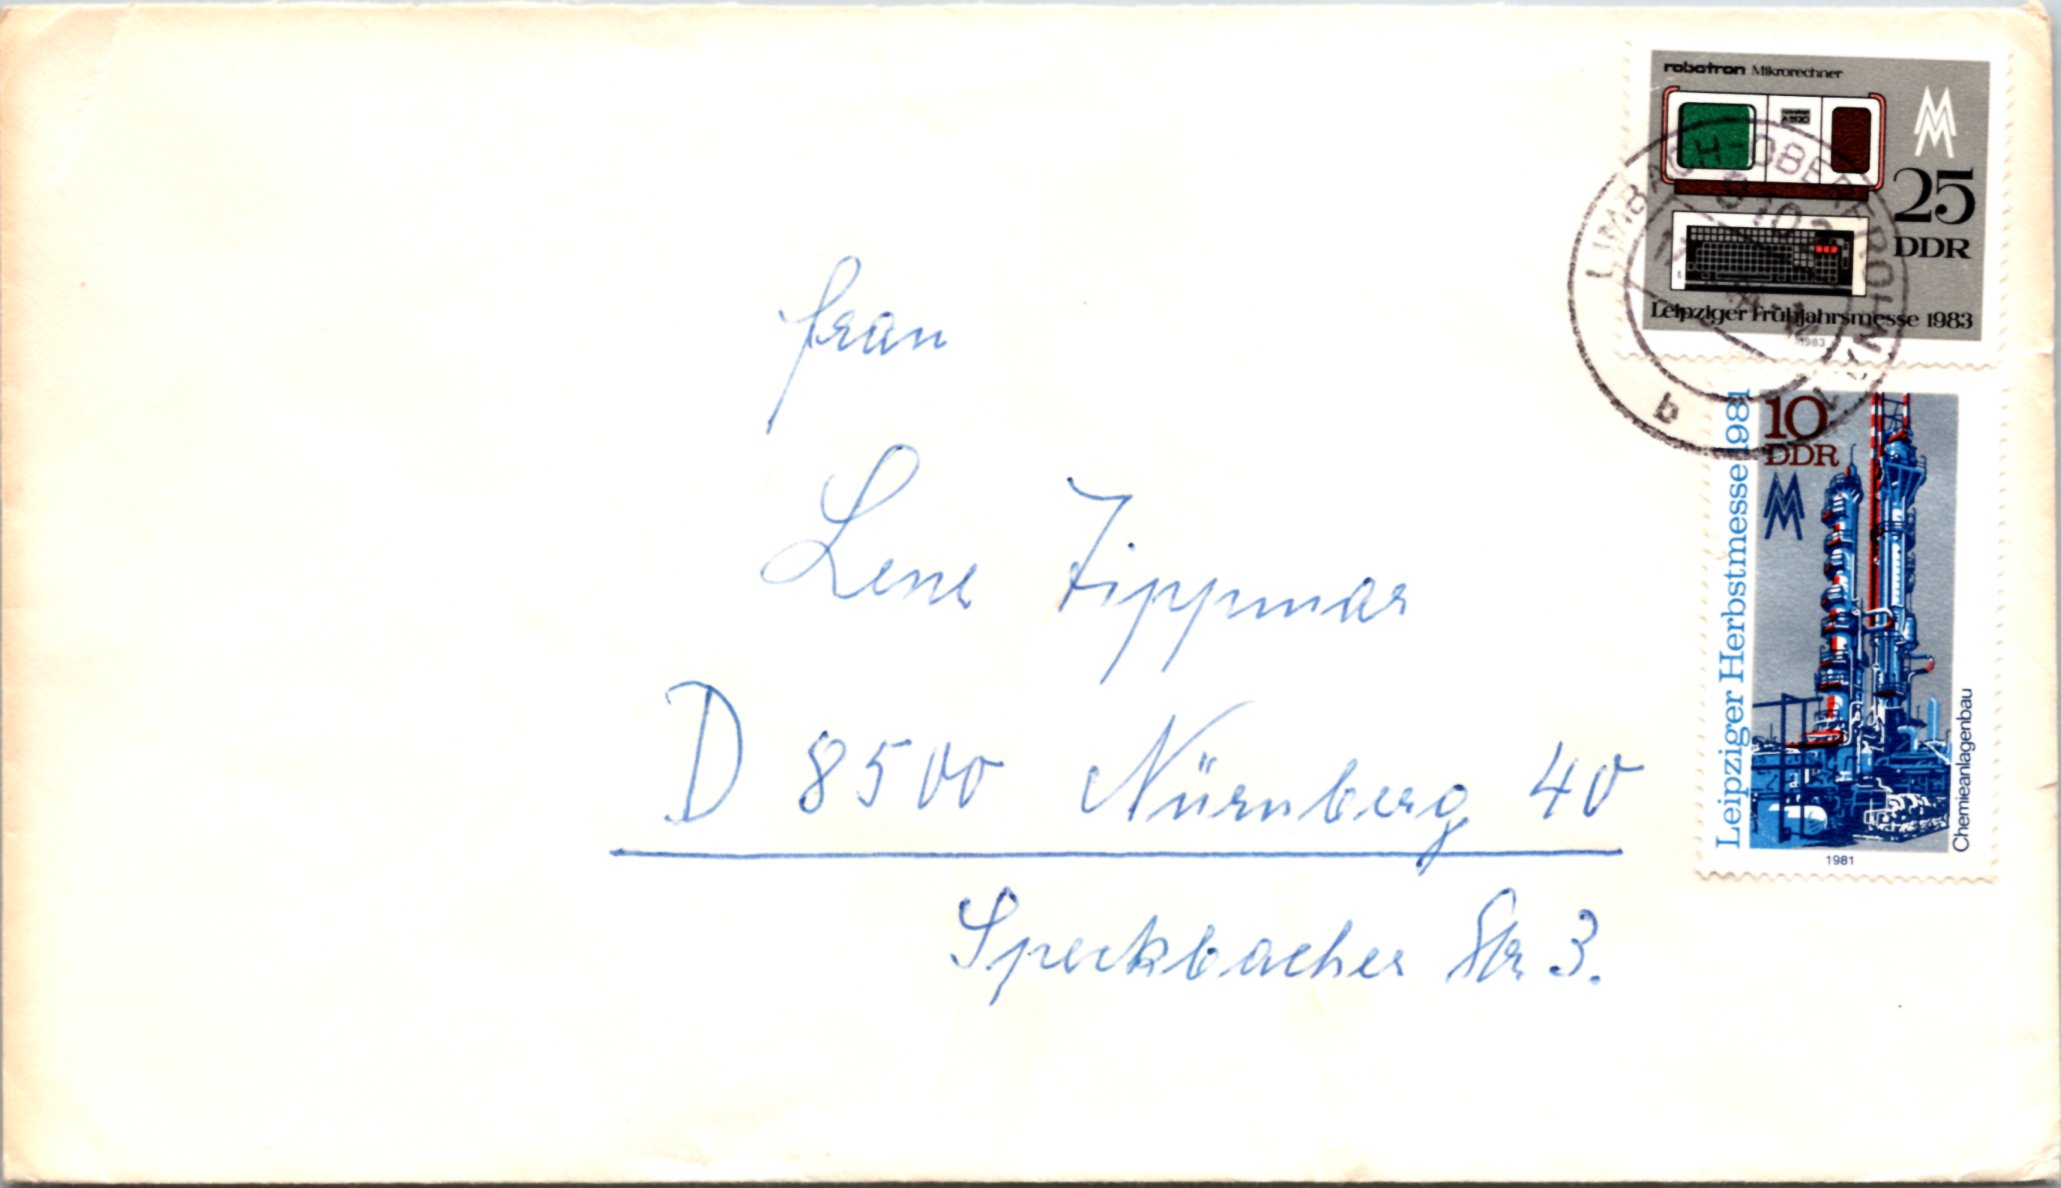 robotron Mikrorechner
25
DDR
Leipziger Frühjahrsmesse 1983
1983
LIMBACH-OBERFROHNA 1
9102
b
10
DDR
Leipziger Herbstmesse 1981
Chemieanlagenbau
1981
Frau
Lene Zippmar
D 8500 Nürnberg 40
Speckbacher Str 3.